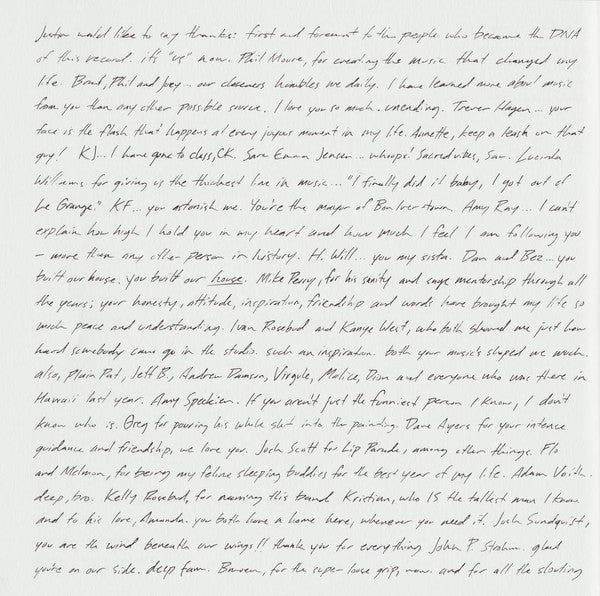 Justin would like to say thanks: first and foremost to the people who became the DNA
of this record. it's "us" now. Phil Moore, for creating the music that changed my
life. Brad, Phil and Joey... our closeness humbles me daily. I have learned more about music
from you than any other possible source. I love you so much. unending. Trever Hagen... your
face is the flash that happens at every joyous moment in my life. Annette, keep a leash on that
guy! KJ... I have gone to class, CK. Sara Emma Jensen... whoops! Sacred vibes, Sar. Lucinda
Williams for giving us the thickest line in music... "I finally did it baby, I got out of
La Grange." KF... you astonish me. You're the mayor of Bon Iver town. Amy Ray... I can't
explain how high I hold you in my heart and how much I feel I am following you
– more than any other person in history. H. Will... you my sista. Dan and Bez... you
built our house. you built our house. Mike Perry, for his sanity and sage mentorship through all
the years; your honesty, attitude, inspiration, friendship and words have brought my life so
much peace and understanding. Ivan Rosebud and Kanye West, who both showed me just how
hard somebody can go in the studio. such an inspiration. both your music's shaped me much.
also, Plain Pat, Jeff B, Andrew Dawson, Virgule, Malice, Dion and everyone who was there in
Hawaii last year. Amy Speckien. If you aren't just the funniest person I know, I don't
know who is. Greg for pouring his whole self into the painting. Dave Ayers for your intense
guidance and friendship, we love you. Josh Scott for Lip Parade, among other things. Flo
and Melmon, for being my feline sleeping buddies for the best year of my life. Adam Voith.
deep, bro. Kelly Rosebud, for naming this band. Kristian, who IS the tallest man I know
and to his love, Amanda. you both have a home here, whenever you need it. Josh Sundquist,
you are the wind beneath our wings!! thank you for everything John P. Strohm. glad
you're on our side. deep fam. for the super-loose grip, now. and for all the